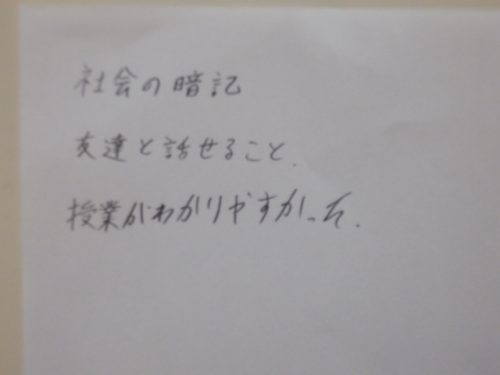 社会の暗記
友達と話せること.
授業がわかりやすかった.